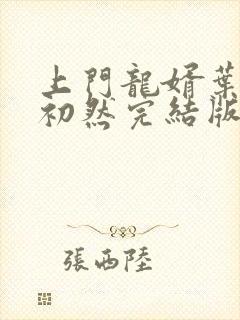 上門龍婿葉
初然完結版
張西陸